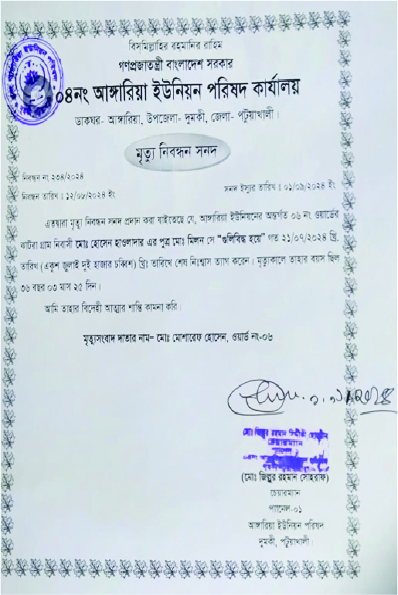 বিসমিল্লাহির রহমানির রাহিম
গণপ্রজাতন্ত্রী বাংলাদেশ সরকার
০৪নং আঙ্গারিয়া ইউনিয়ন পরিষদ কার্যালয়
ডাকঘর- আঙ্গারিয়া, উপজেলা- দুমকী, জেলা- পটুয়াখালী।
মৃত্যু নিবন্ধন সনদ
নিবন্ধন নং ২৩৪/২০২৪
সনদ ইস্যুর তারিখ : ০১/০৯/২০২৪ ইং
নিবন্ধন তারিখ : ১২/০৮/২০২৪ ইং
এতদ্বারা মৃত্যু নিবন্ধন সনদ প্রদান করা যাইতেছে যে, আঙ্গারিয়া ইউনিয়নের অন্তর্গত ০৬ নং ওয়ার্ডের
গ্রাম নিবাসী মোঃ হোসেন হাওলাদার এর পুত্র মোঃ মিলন সে "গুলিবিদ্ধ হয়ে" গত ২১/০৭/২০২৪ খ্রি.
তারিখ (একুশ জুলাই দুই হাজার চব্বিশ) খ্রিঃ তারিখে শেষ নিঃশ্বাস ত্যাগ করেন। মৃত্যুকালে তাহার বয়স ছিল
৩৬ বছর ০৩ মাস ২৫ দিন।
আমি তাহার বিদেহী আত্মার শান্তি কামনা করি।
মৃত্যুসংবাদ দাতার নাম= মোঃ মোশারেফ হোসেন, ওয়ার্ড নং-০৬
চেয়ারম্যান
(মোঃ জিল্লুর রহমান সোহরাফ)
চেয়ারম্যান
প্যানেল-০১
আঙ্গারিয়া ইউনিয়ন পরিষদ
দুমকী, পটুয়াখালী।